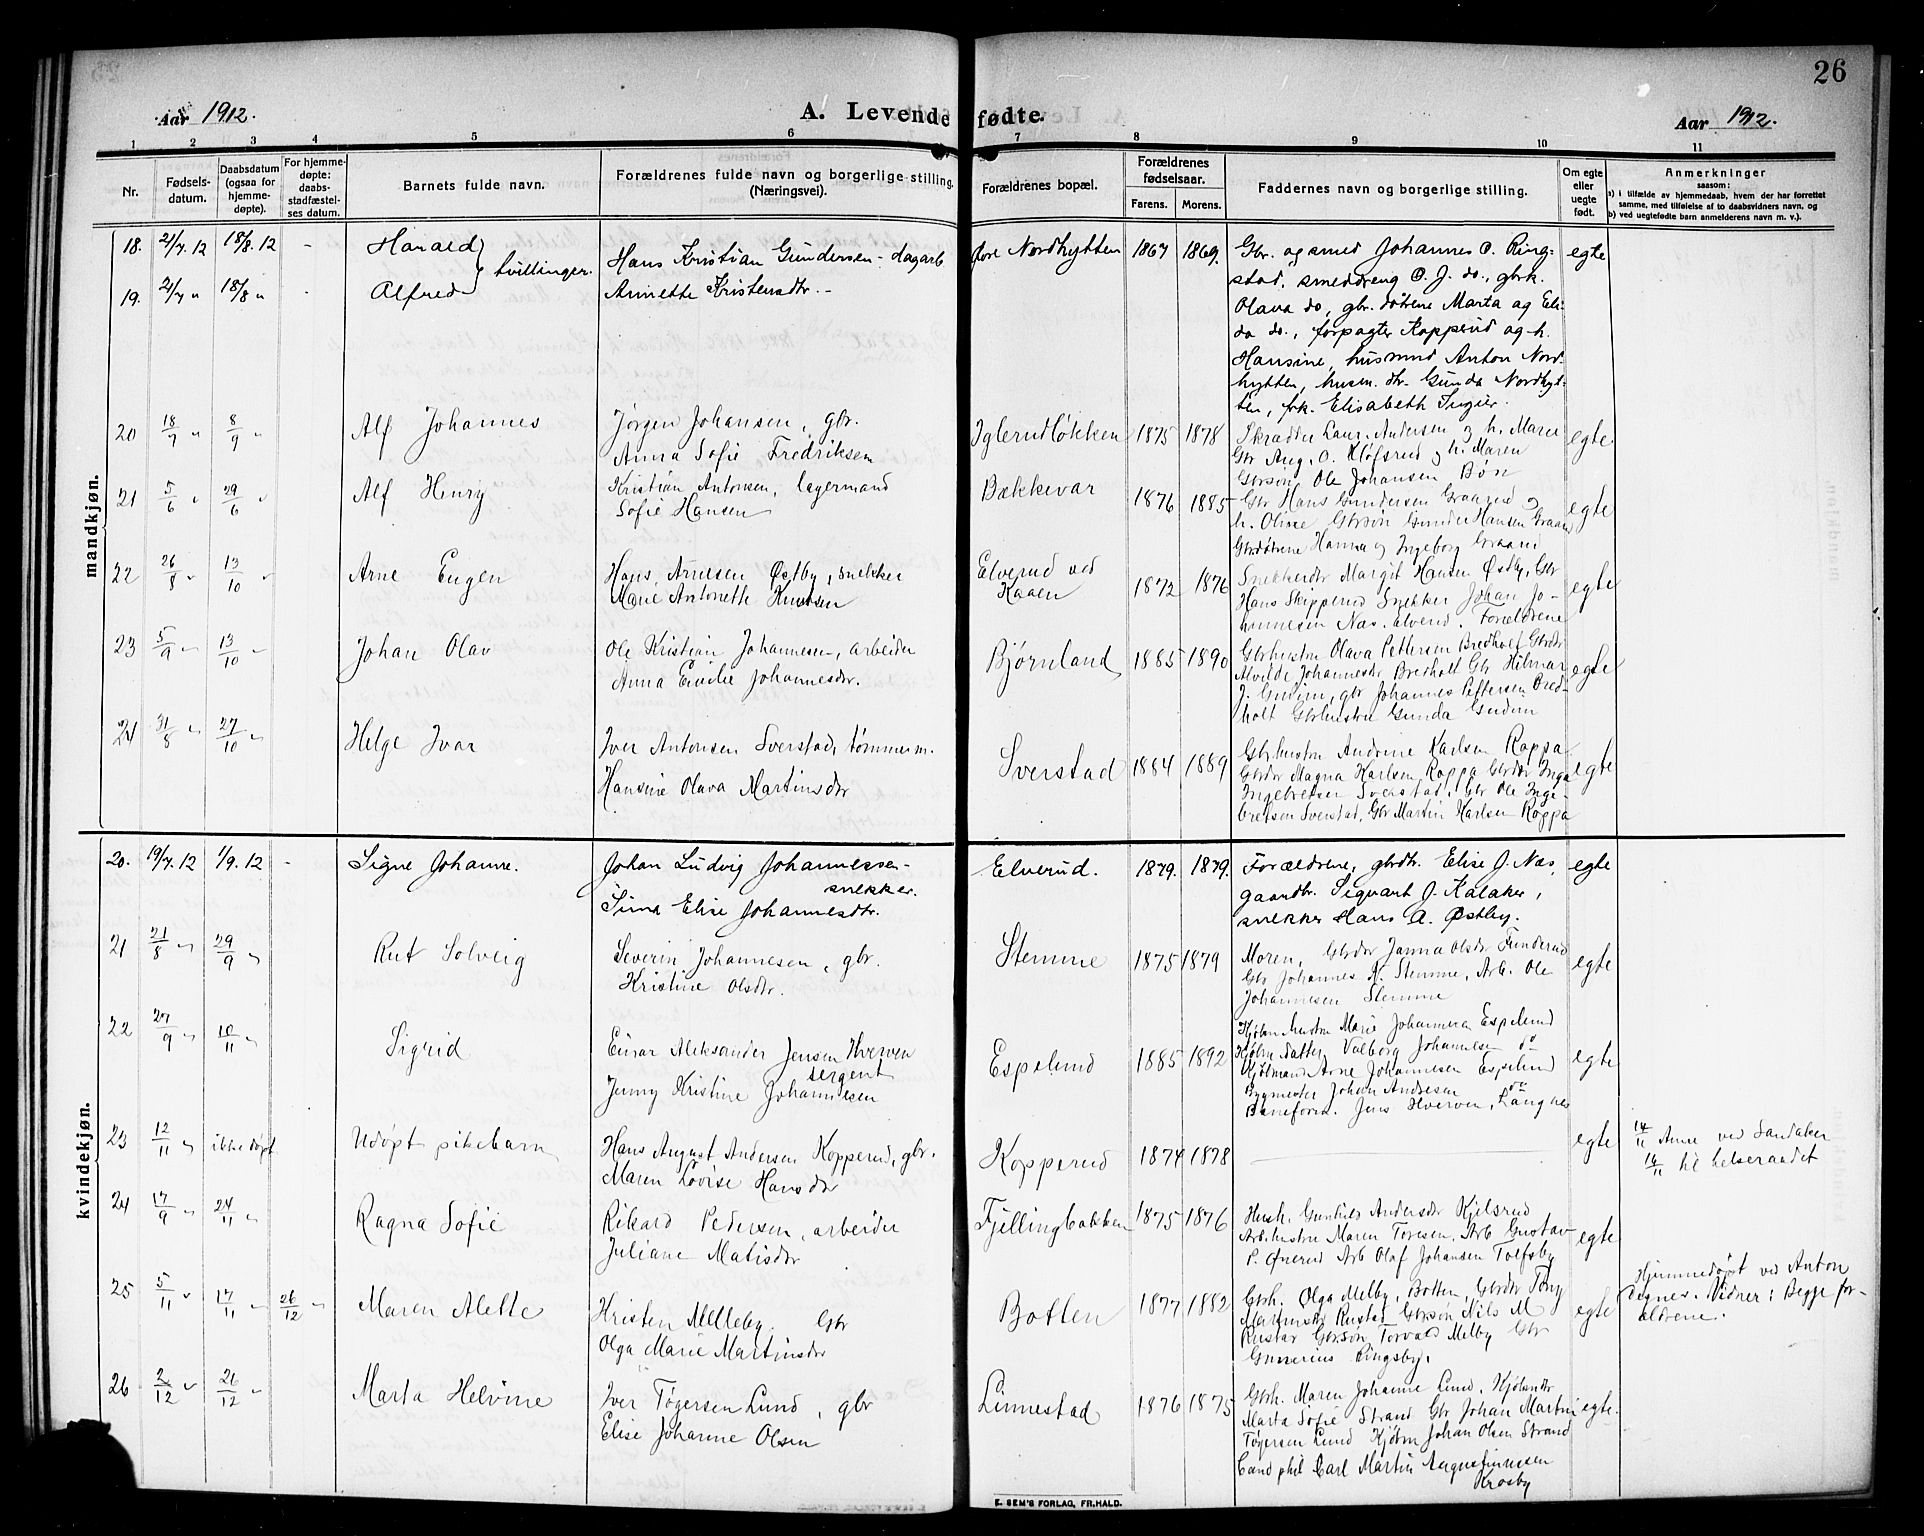 26
Aar 1912. A. Levende fødte. Aar 1912.
1 2 3 4 5 6 7 8 9 10 11
Nr.
Fødsels-
datum.
Daabsdatum
(ogsaa for
hjemme-
døpte).
For hjemme-
døpte:
daabs-
stadfæstel-
ses datum.
Barnets fulde navn.
Forældrenes fulde navn og borgerlige stilling.
(Næringsvei).
Forældrenes bopæl.
Forældrenes
fødselsaar.
Farens. Morens.
Faddernes navn og borgerlige stilling.
Om egte
eller
uegte
født.
Anmerkninger
saasom:
a) i tilfælde av hjemmedaab, hvem der har forrettet
samme, med tilføielse af to daabsvidners navn, og
b) ved uegtefødte barn anmelderens navn m. v.).
mandkjøn.
18. 21/7. 12 18/8. 12 - Harald
19. 21/7 " 18/8 " - Alfred
tvillinger.
Hans Kristian Gundersen - dagarb.
Annette Kristensdtr. -
Nordhytten 1867 1869.
Gbr. og smed Johannes O. Ring-
stad, smeddreng O. J. do., gbrk.
Olava do, gbr. døtrene Marta og Eli-
da do., forpagter Kopperud og h.
Hansine, husmnd Anton Nord-
hytten, husm. dtr. Gunda Nordhyt-
ten, frk. Elisabeth
egte
20 18/7 " 8/9 " Alf Johannes
Jørgen Johansen, gbr.
Anna Sofie Fredriksen
Iglerudløkken 1875 1878
Skrædder Laur. Andersen og h. Marie
Gbr Aug. O. Kløfsrud og h. Maren
Gbrsøn Ole Johansen Bøn
egte
21 5/6 " 29/6 " Alf Henry
Kristian Antonsen, lagermand
Sofie Hansen
Bækkevar 1876 1885
Gbr Hans Gundersen Graarud og
h. Oline Gbrsøn Gunder Hansen Graar
Gbrdøtrene Hanna og Ingeborg Graarud
egte
22 26/8 " 13/10 " Arne Eugen
Hans Arnesen Østby, snekker
Marie Antonette Knutsen
Elverud ved
Kaaen
1872 1876
Snekkerdtr Margit Hansen Østby, Gbr
Hans Skipperud Snekker Johan Jo-
hannesen Næs. elverud. Forældrene
egte
23 5/9 " 13/10 " Johan Olav
Ole Kristian Johannesen, arbeider
Anna Emilie Johannesdtr.
Bjørnland 1885 1890
Gbrhustru Olava Pettersen Bredholt Gbrdtr
Alvilde Johannesdtr Bredholt Gbr Hilmar
J. Gudim, gbr Johannes Pettersen Bred-
holt Gbrhustru Gunda Gudim
egte
24 31/8 " 27/10 " Helge Ivar
Iver Antonsen Sverstad, tømmerm.
Hansine Olava Martinsdtr
Sverstad 1884 1889
Gbr.hustru Andrine Karlsen Rappa
Gbrdtr Magna Karlsen Rappa Gbrdtr Inga
Ingebretsen Sverstad, Gbr Ole Inge-
bretsen Sverstad, Gbr Martin Karlsen Rappa
egte
kvindekjøn.
20. 19/7. 12 1/9. 12 - Signe Johanne.
Johan Ludvig Johannessen -
snekker.
Sina Elise Johannesdtr.
Elverud. 1879. 1879.
Forældrene, gbrdtr. Elise J. Næs,
gaardbr. Sigvart J. Kalaker,
snekker Hans A. Østby.
egte
21 21/8 " 29/9 " Rut Solveig
Severin Johannesen, gbr.
Kristine Olsdtr.
Stemme 1875 1879
Moren, Gbrdtr Janna Olsdtr Funderud
Gbr Johannes N. Stemme, Arb. Ole
Johannesen Stemme
egte
22 27/9 " 10/11 " Sigrid
Einar Aleksander Jensen Hverven
sergent
Jenny Kristine Johannesen
Espelund 1885 1892
Kjøbm. hustru Marie Johannesen Espelund
Kjøbm. datter Valborg Johannesen do
Kjøbmand Arne Johannesen Espelund
Bygmester Johan Andresen do
Baneform. Jens Hverven, Langnes
egte
23 12/11 " ikke døpt Udøpt pikebarn
Hans August Andersen Kopperud, gbr.
Maren Lovise Hansdtr
Kopperud 1874 1878
egte
14/11 Anm ved Sandaker
16/11 til helseraadet
24 17/9 " 24/11 " Ragna Sofie
Rikard Pedersen, arbeider
Juliane Matisdtr
Fjellingbakken 1875 1876
Hush. Gunhild Andersdtr Kjelsrud
Arb.hustru Maren Toresen, Arb Gustav
P. Ørerud Arb Olaf Johansen Tolfsby
egte
25 5/11 " 17/11 " 26/12 " Maren Alette
Kristen Melleby. Gbr
Olga Marie Martinsdtr
Botten 1877 1882
Gbrh. Olga Melby, Botten, Gbrdtr Tony
Martinsdtr Rustad Gbrsøn Nils M
Rustad Gbrsøn Torvald Melby Gbr
Gunerius Ringsby.
egte
Hjemmedøpt ved Anton
Vidner: Begge for-
ældrene.
26 2/12 " 26/12 " Marta Helvine
Iver Tøgersen Lund, gbr
Elise Johanne Olsen
Linnestad 1876 1875
Gbrh. Maren Johanne Lund, Kjøbmdtr
Marta Sofie Strand Gbr Johan Martin
Tøgersen Lund Kjøbm Johan Olsen Strand
Cand phil Carl Martin Augustinussen
Krosby
egte.
E. SEM'S FORLAG, FR.HALD.